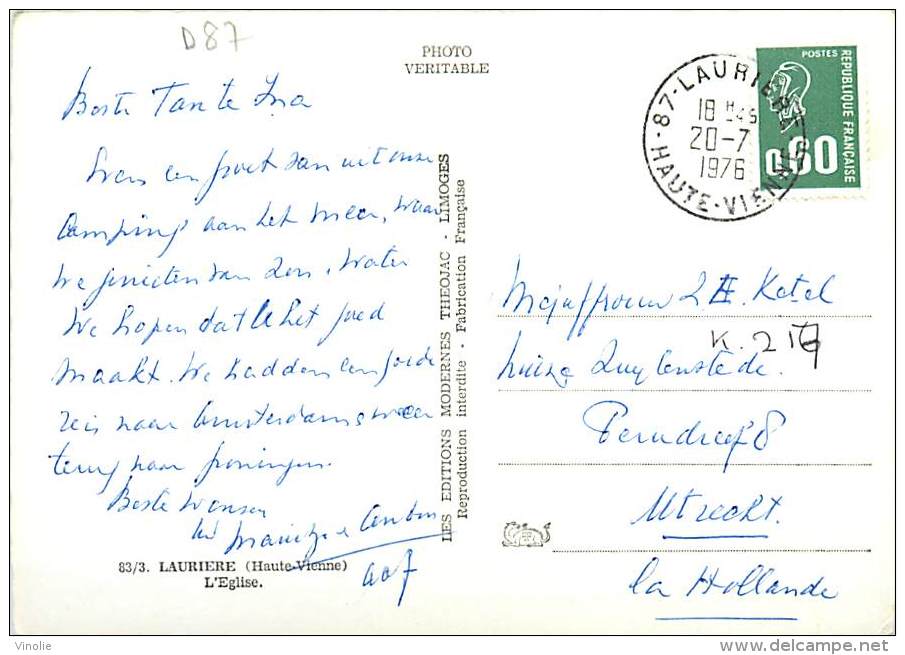 D87
PHOTO
VERITABLE
Beste Tante Ina
Even een groet van uit onze
Camping aan het meer, waar
We genieten van Zon, Water
We hopen dat U het goed
maakt. We hadden een goede
reis naar Amsterdam & weer
terug naar Groningen.
Beste wensen
83/3. LAURIERE (Haute-Vienne)
L'Eglise.
LES EDITIONS MODERNES THEOJAC - LIMOGES
Reproduction interdite - Fabrication Française
87-LAURIERE
18 H45
20-7
1976
HAUTE-VIENNE
POSTES
REPUBLIQUE FRANÇAISE
0,60
Mejuffrouw Ketel
K. 219
huize Zuylenstede.
8
Utrecht.
la Hollande
Vinolie
delcampe.net